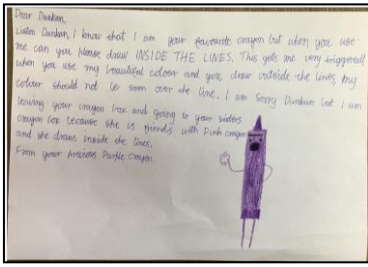 Dear Duncan,
Listen Duncan, I know that I am your favourite crayon but when you use
me can you please draw INSIDE THE LINES. This gets me very triggered
when you use my beautiful colour and you draw outside the lines, my
colour should not be seen over the line. I am sorry Duncan but I am
leaving your crayon box and going to your sisters
crayon box because she is friends with Pink crayon
and she draws inside the lines.
From your precious Purple Crayon.